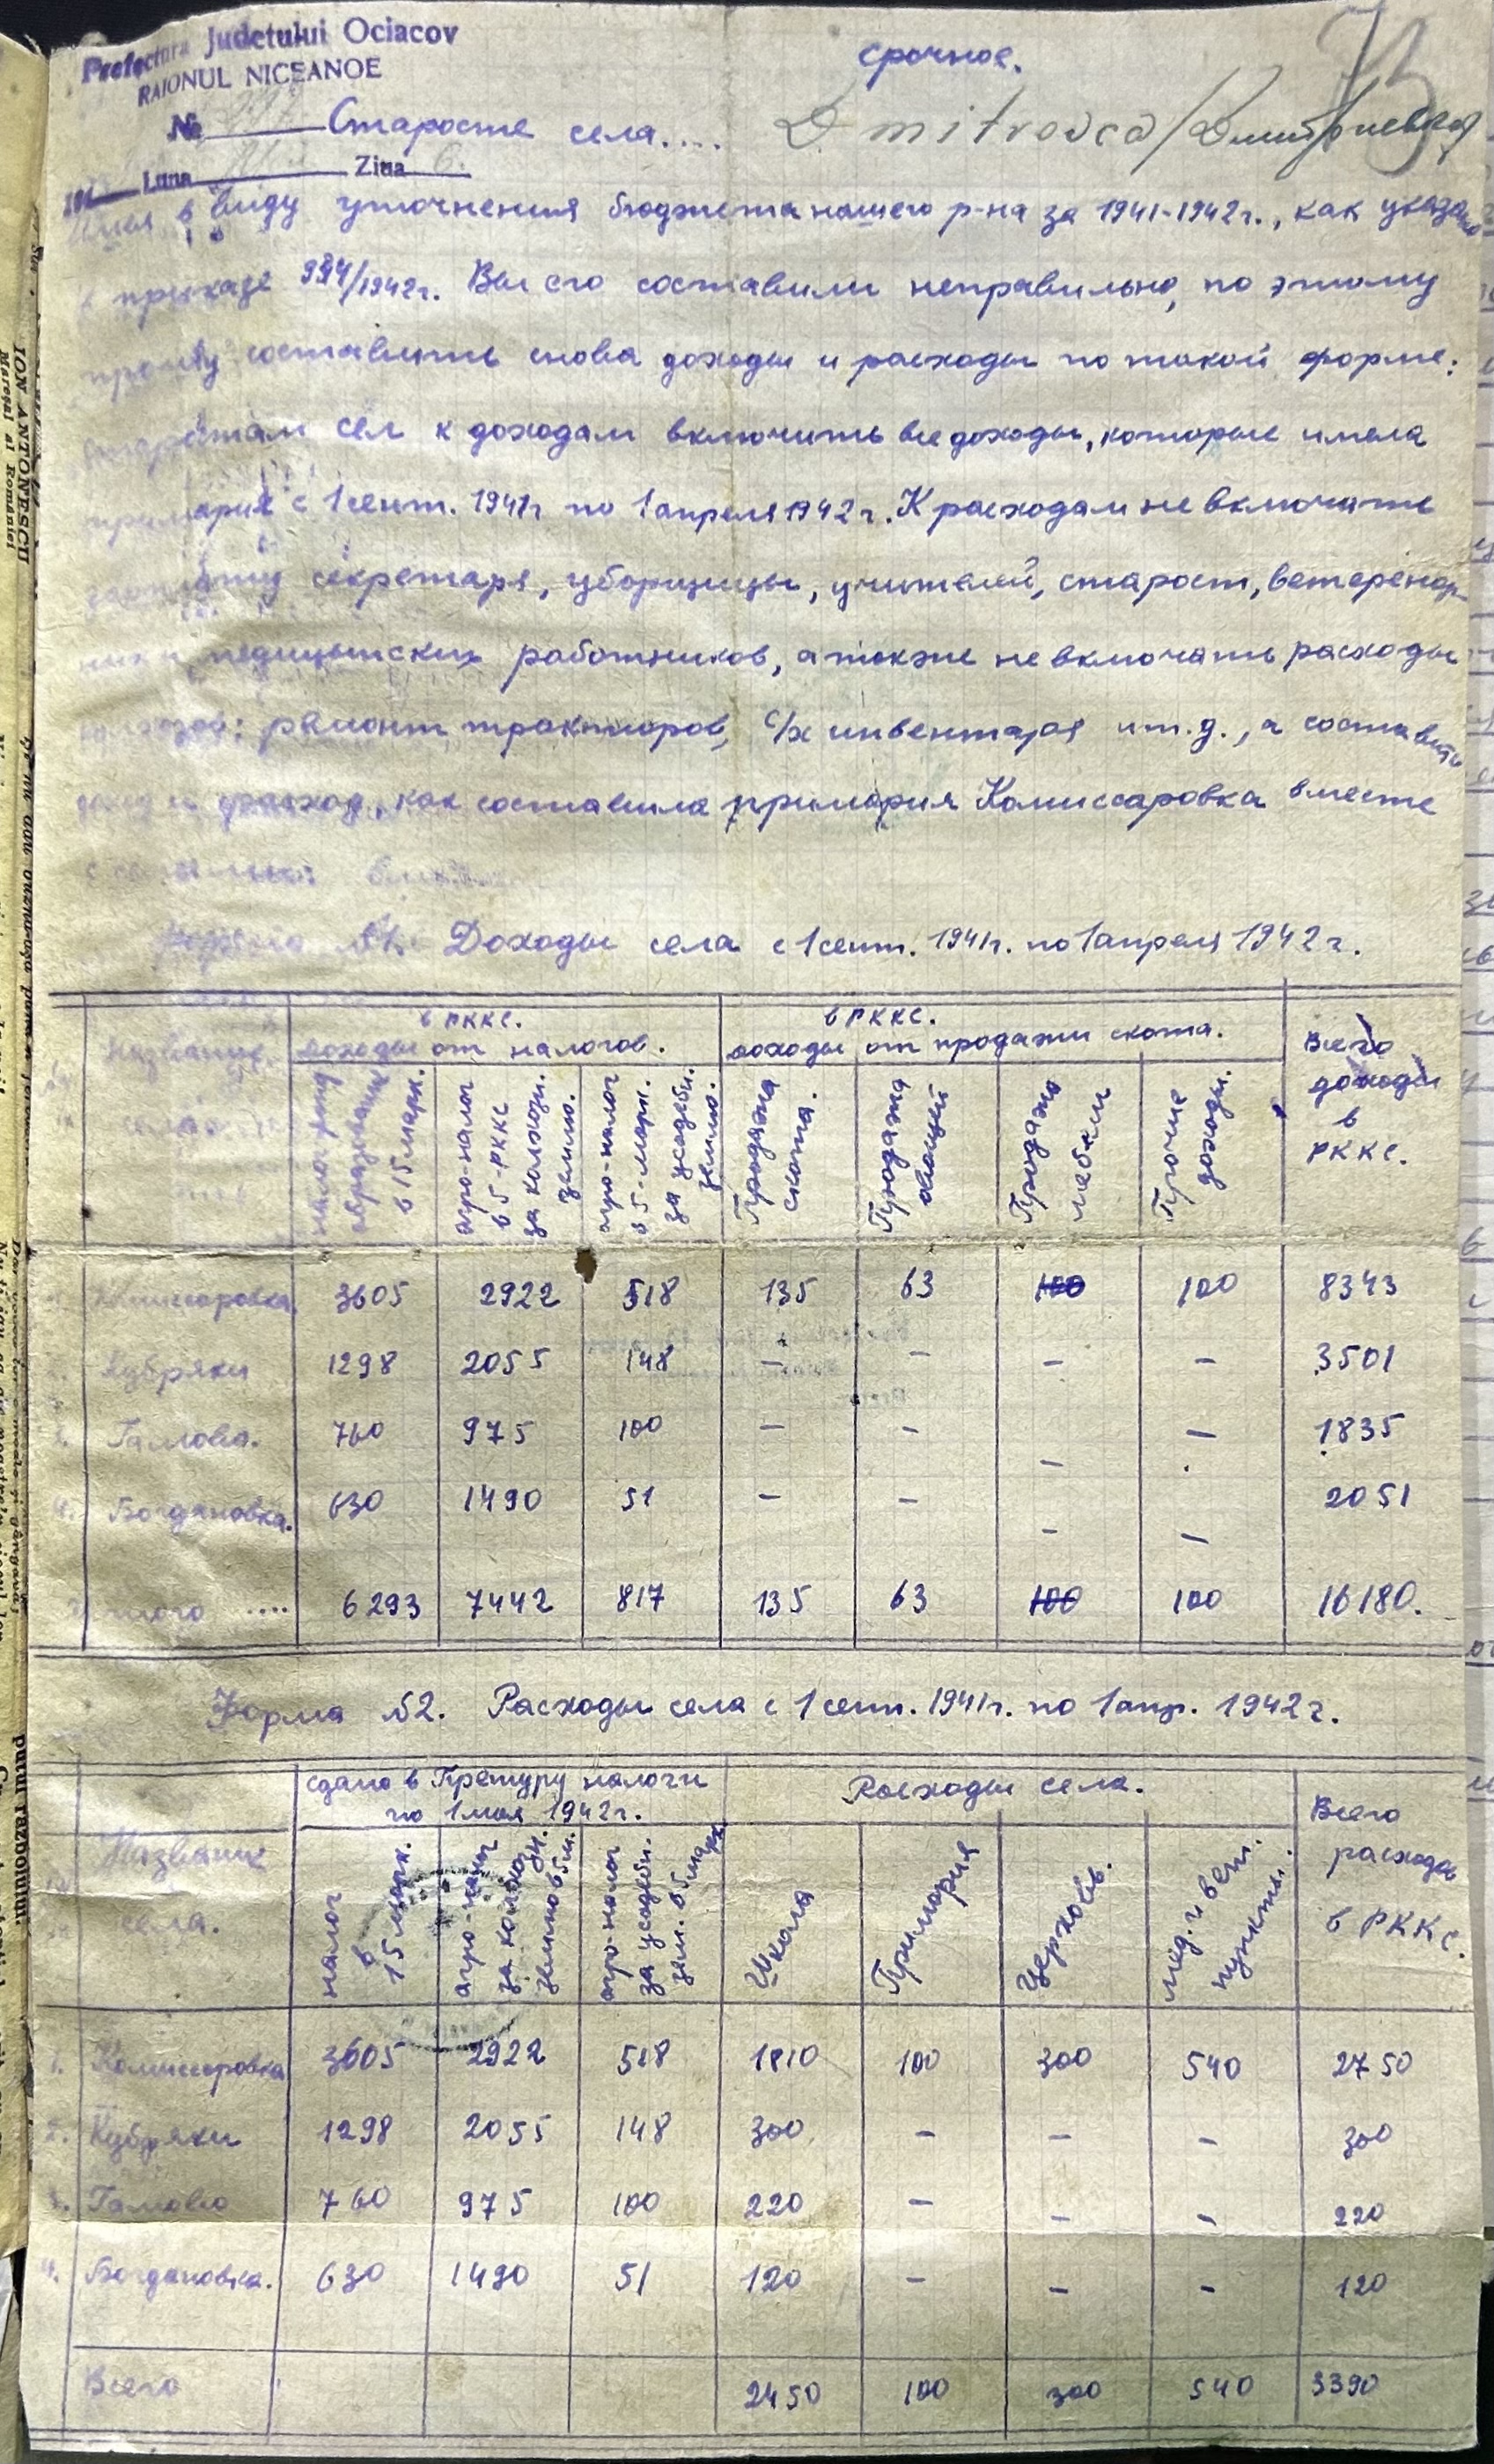 Prefectura Judetului Ociacov
RAIONUL NICEANOE
срочное.
73
№ Старосте села.... Dmitrovca/Дмитриевка
194 Luna Ziua 6.
Имея в виду уточнения бюджета нашего р-на за 1941-1942г., как указано
в приказе 994/1942г. Вы его составили неправильно, по этому
прошу составить снова доходы и расходы по такой форме:
сел к доходам включить все доходы, которые имела
примария с 1 сент. 1941г по 1 апреля 1942г. К расходам не включать
зарплату секретаря, уборщицы, учителей, старост, ветеренар-
ных и медицынских работников, а также не включать расходы
колхозов: ремонт тракторов, с/х инвентаря и т.д., а составить
доход и расход, как составила примария Комиссаровка вместе
с
Форма №1. Доходы села с 1 сент. 1941г. по 1 апреля 1942г.
Название
в РККС.
доходы от налогов.
в РККС.
доходы от продажи скота.
Всего
доходы
в
РККС.
в 15 марк.
агро-налог
в 5-РККС
за колхозн.
землю.
агро-налог
в 5-марк.
за усадебн.
землю.
Продажа
скота.
Продажа
овощей
Продажа
мебели
Прочие
доходы.
Комиссаровка 3605 2922 518 135 63 100 100 8343
Кубряки 1298 2055 148 – – – – 3501
Гамово. 760 975 100 – – – – 1835
4. Богдановка. 630 1490 51 – – – – 2051
Итого .... 6293 7442 817 135 63 100 100 16180.
Форма №2. Расходы села с 1 сент. 1941г. по 1 апр. 1942г.
Название
села.
сдано в Претуру налоги
по 1 мая 1942г.
Расходы села.
Всего
расходы
в РККС.
налог
в
15 марк.
агро-налог
за колхозн.
землю в 5 м.
агро-налог
за усадебн.
зем. в 5 марк.
Школа
Примария
Церковь.
мед. и вет.
пункты.
1. Комиссаровка 3605 2922 518 1810 100 300 540 2750
2. Кубряки 1298 2055 148 300 – – – 300
3. Гамово 760 975 100 220 – – – 220
4. Богдановка. 630 1490 51 120 – – – 120
Всего 2450 100 300 540 3390
ION ANTONESCU
Mareşal al României